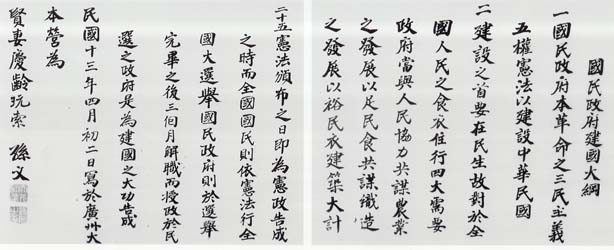 國民政府建國大綱
一國民政府本革命之三民主義
五權憲法以建設中華民國
二建設之首要在民生故對於全
國人民之食衣住行四大需要
政府當與人民協力共謀農業
之發展以足民食共謀織造
之發展以裕民衣建築大計
二十五憲法頒布之日即為憲政告成
之時而全國國民則依憲法行全
國大選舉國民政府則於選舉
完畢之後三個月解職而授政於民
選之政府是為建國之大功告成
民國十三年四月初二日寫於廣州大
本營為
賢妻慶齡玩索 孫文